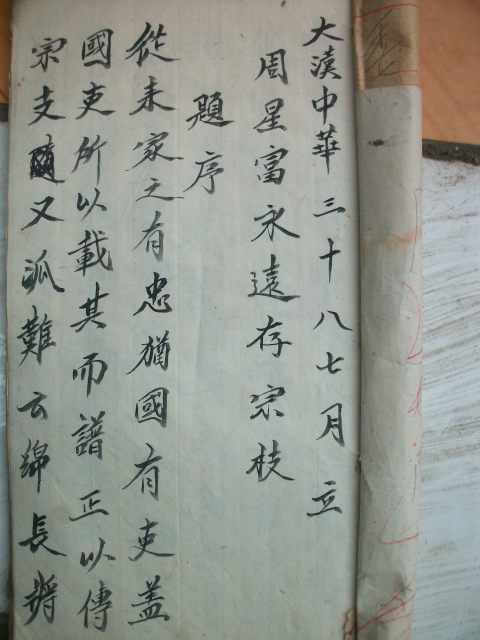 大漢中華三十八七月立
周星富永遠存宗枝
題序
從未家之有忠猶國有吏盖
國吏所以載其而譜正以傳
宗支隨又派難云綿長將